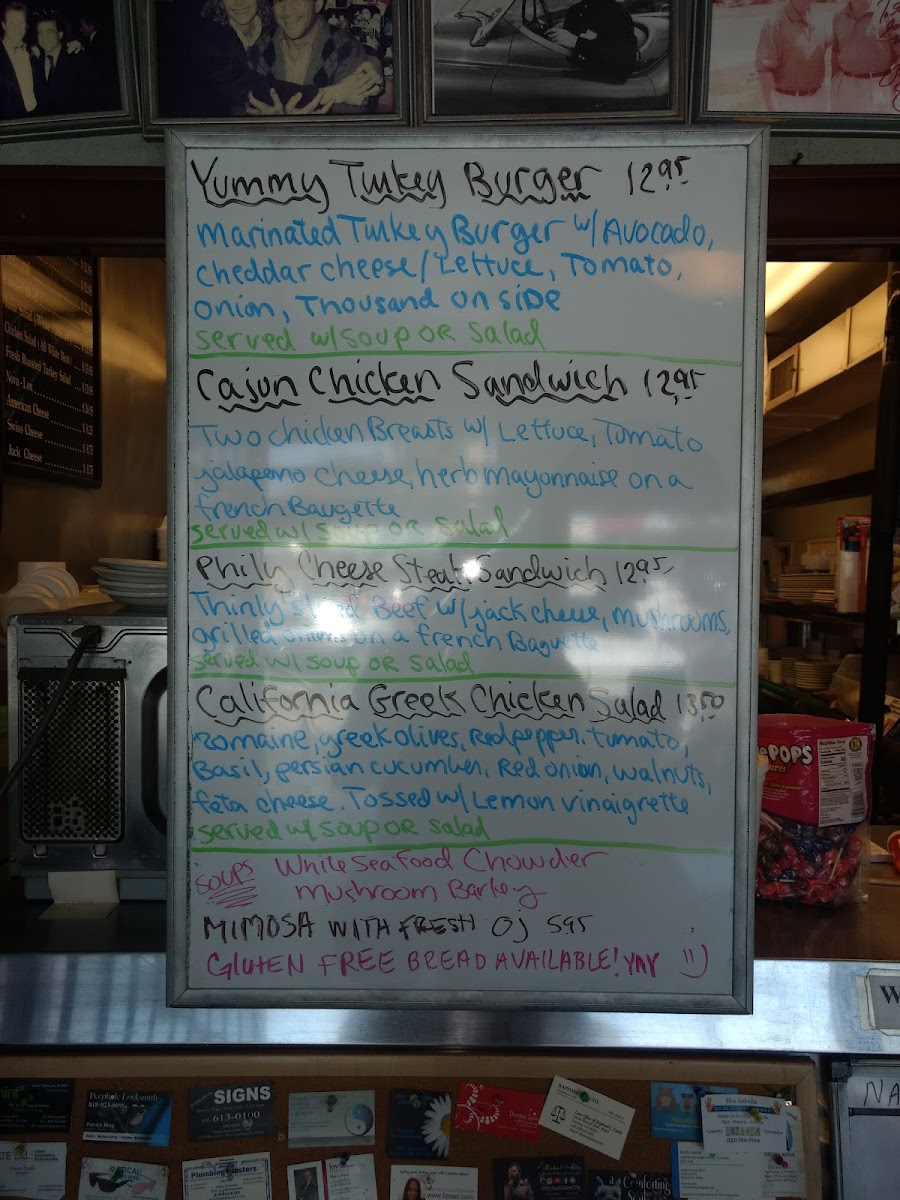 Yummy Turkey Burger 12.95
Marinated Turkey Burger w/ Avocado,
cheddar cheese/Lettuce, Tomato,
onion, Thousand on side
served w/ soup OR Salad
Cajun Chicken Sandwich 12.95
Two chicken Breasts w/ Lettuce, Tomato
jalapeno cheese, herb mayonnaise on a
french Baugette
served w/ soup OR Salad
Philly Cheese Steak Sandwich 12.95
Thinly sliced Beef w/ jack cheese, mushrooms,
grilled onions on a french Baguette
served w/ soup OR salad
California Greek Chicken Salad 13.50
Romaine, greek olives, Red pepper, tomato,
Basil, persian cucumber, Red onion, walnuts,
feta cheese. Tossed w/ Lemon vinaigrette
served w/ soup OR salad
Soups White Seafood Chowder
Mushroom Barley
MIMOSA WITH FRESH OJ 595
GLUTEN FREE BREAD AVAILABLE! YAY :)
Chicken Salad (All White Meat)
Fresh Roasted Turkey Salad
Nova-Lox
American Cheese
Swiss Cheese
Jack Cheese
POPS
Nutrition Facts
W
NA
Peephole Locksmith
Patrick Ring
SIGNS
613-0100
OPTICAL
Plumbing Masters
kw
Miss Isabella
Comforting